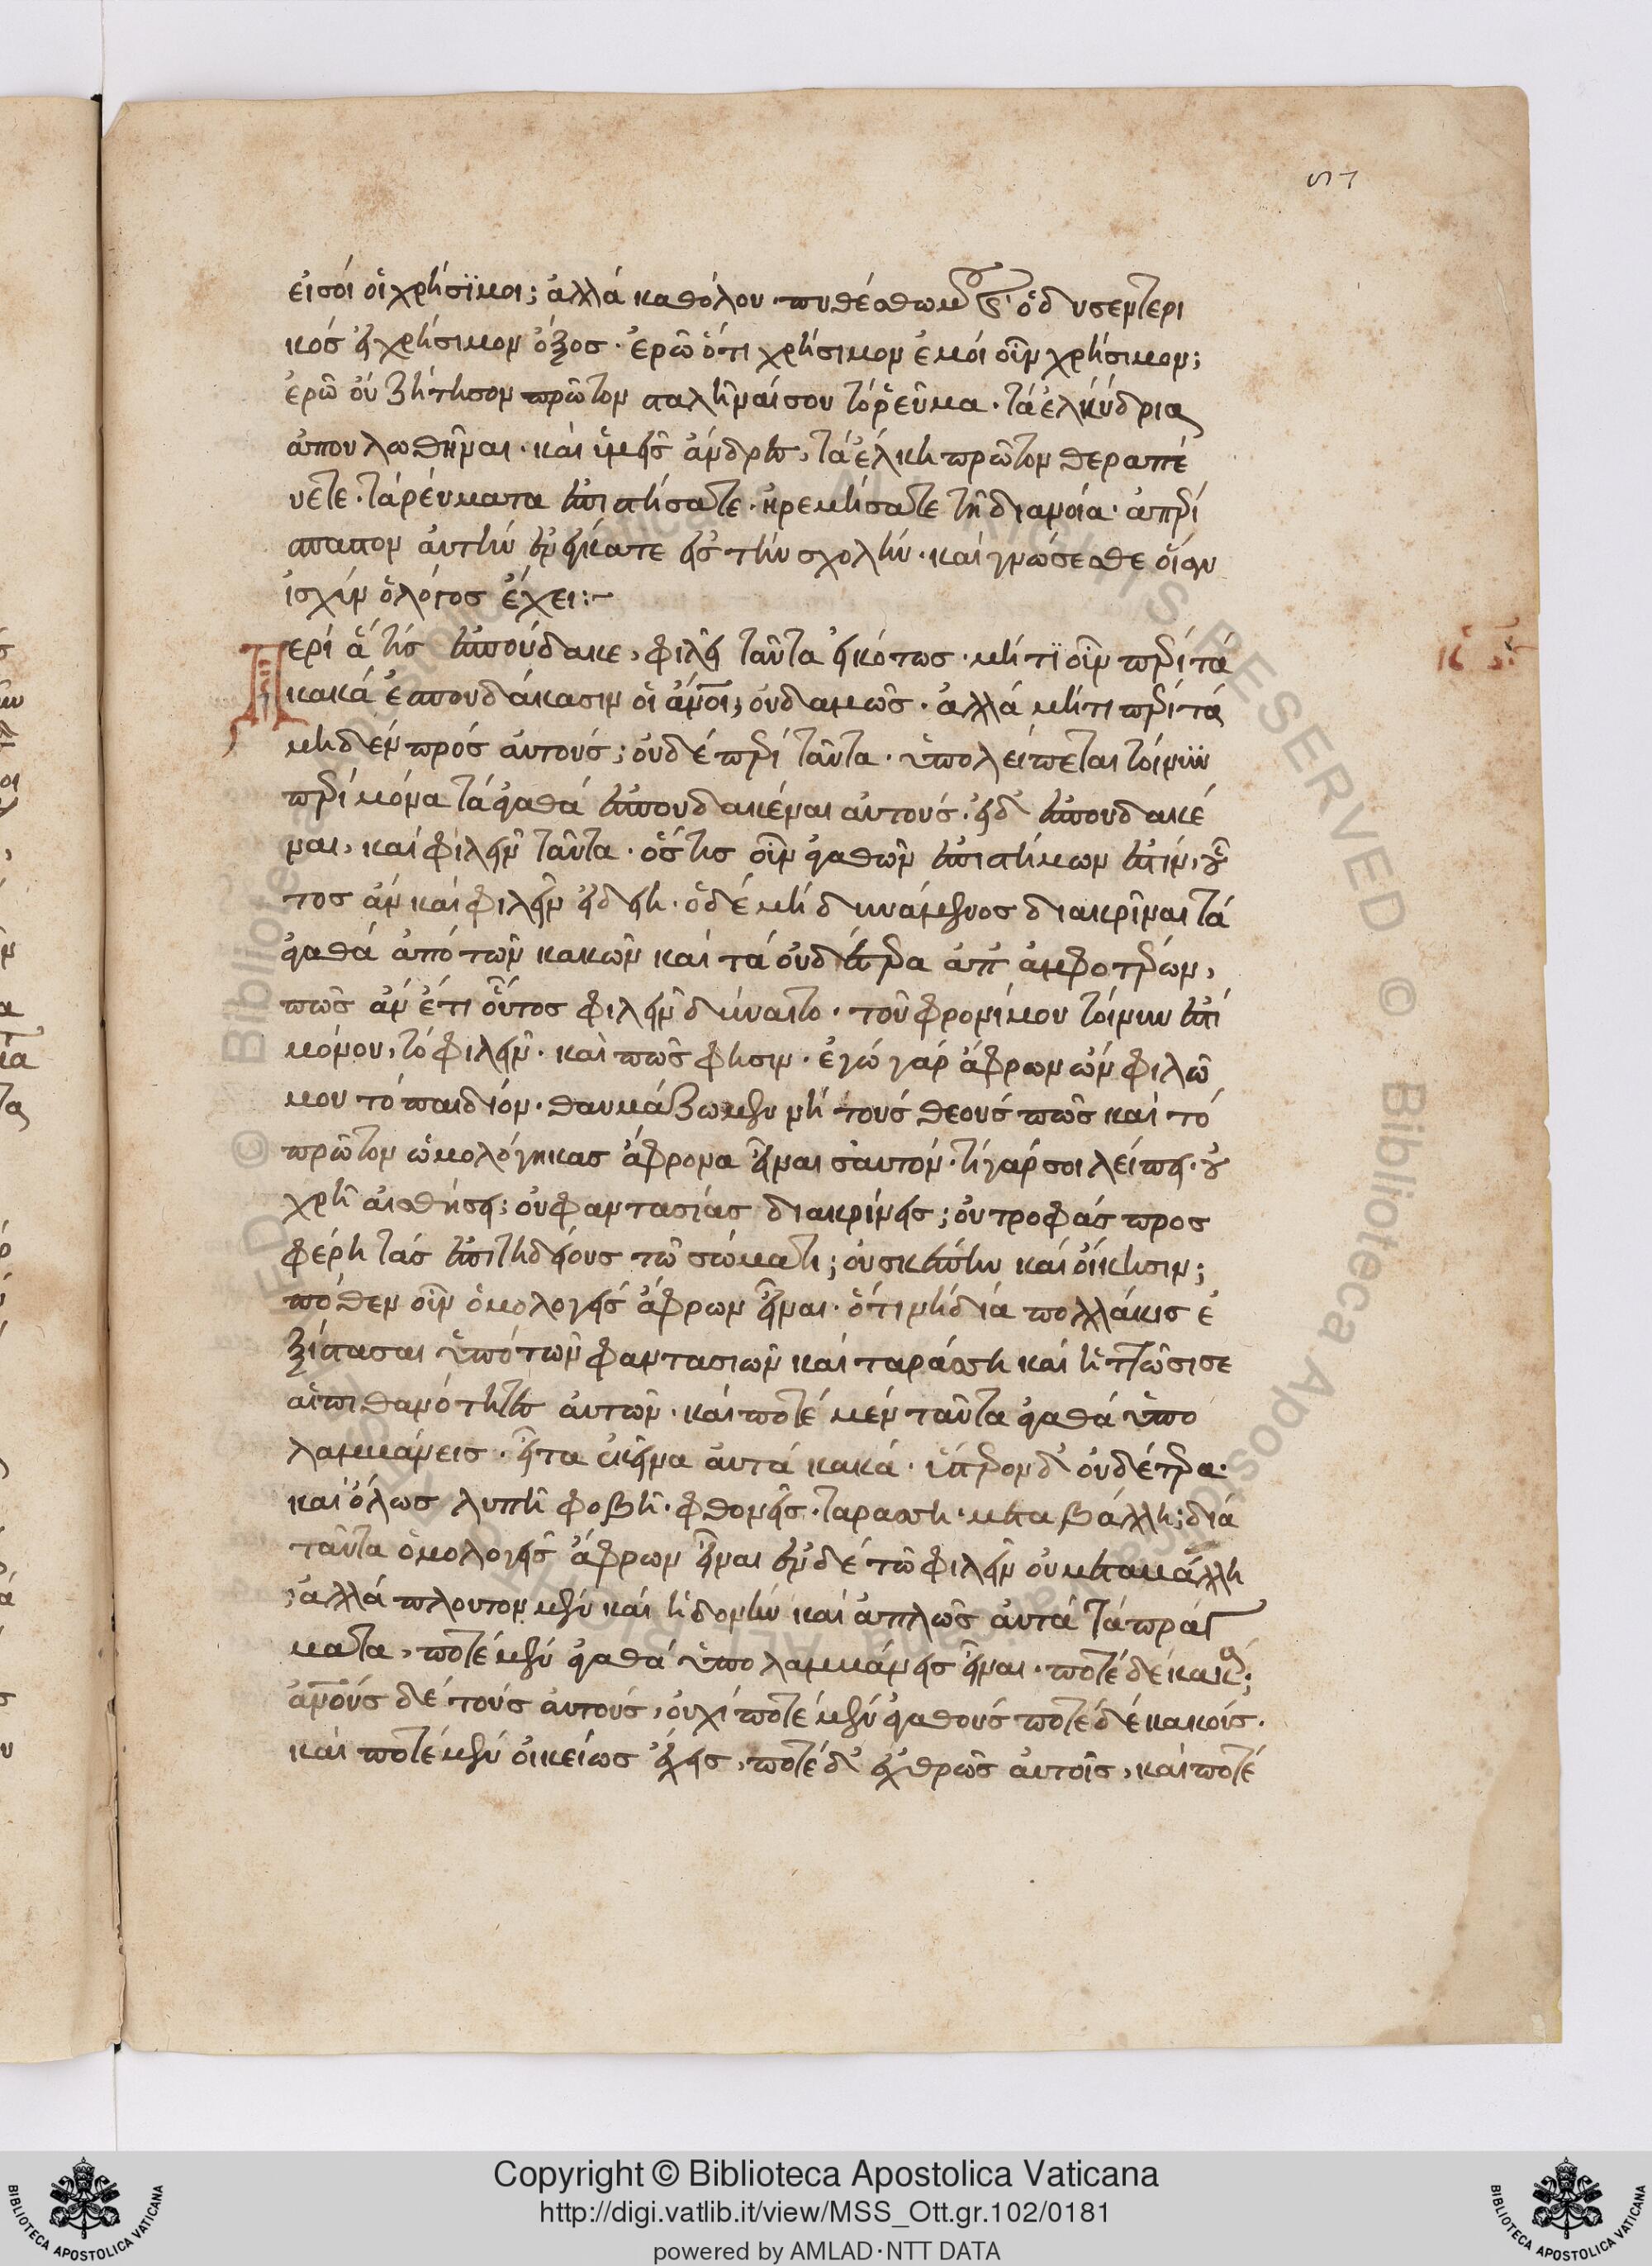 ςτ
εἰσὶ οἱ χρήσϊμοι; ἀλλὰ καθόλου πυθέσθω μου ὁ δυσεντερι
κὸς εἰ χρήσιμον ὄξος· ἐρῶ ὅτι χρήσιμον ἐμοὶ οὖν χρήσιμον;
ἐρῶ οὐ ζήτησον πρῶτον σταλῆναί σου τὸ ῥεῦμα· τὰ ἑλκύδρια
ἀπουλωθῆναι· καὶ ὑμεῖς ἄνδρες, τὰ ἕλκη πρῶτον θεραπεύ
υετε· τὰ ῥεύματα ἐπιστήσατε· ἠρεμήσατε τῇ διανοία· ἀπερί
σπαστον αὐτὴν ἐνείκατε εἰς τὴν σχολήν· καὶ γνώσεσθε οἵαν
ἰσχὺν ὁ λόγος ἔχει:~
Περὶ ἅ τις ἐσπούδακε, φιλεῖ ταῦτα εἰκότως· μή τϊ οὖν περὶ τὰ
κακὰ ἐσπουδάκασιν οἱ ἄνοι; οὐδαμῶς· ἀλλὰ μή τι περὶ τὰ
μηδὲν πρὸς αὐτούς; οὐδὲ περὶ ταῦτα· ὑπολείπεται τοίνυν
περὶ μόνα τὰ ἀγαθὰ ἐσπουδακέναι αὐτούς· εἰ δ' ἐσπουδακέ
ναι, καὶ φιλεῖν ταῦτα· ὅστις οὖν ἀγαθῶν ἐπιστήμων ἐστίν, οὗ
τος ἂν καὶ φιλεῖν εἰδείη· ὁ δὲ μὴ δυνάμενος διακρῖναι τὰ
ἀγαθὰ ἀπὸ τῶν κακῶν καὶ τὰ οὐδέτερα ἀπ' ἀμφοτέρων,
πῶς ἂν ἔτι οὗτος φιλεῖν δύναιτο· τοῦ φρονίμου τοίνυν ἐστὶ
μόνου, τὸ φιλεῖν· καὶ πῶς φησιν· ἐγὼ γὰρ ἄφρων ὢν φιλῶ
μου τὸ παιδίον· θαυμάζω μὲν νὴ τοὺς θεοὺς πῶς καὶ τὸ
πρῶτον ὡμολόγηκας ἄφρονα εἶναι σαυτόν· τί γάρ σοι λείπει· οὐ
χρῆ αἰσθήσει; οὐ φαντασίας διακρίνεις; οὐ τροφὰς προσ
φέρη τὰς ἐπιτηδείους τῶ σώματι; οὐ σκέπην καὶ οἴκησιν;
πόθεν οὖν ὁμολογεῖς ἄφρων εἶναι· ὅτι νὴ δία πολλάκις ἐ
ξίστασαι ὑπὸ τῶν φαντασιῶν καὶ ταράσση καὶ ἡττῶσί σε
αἱ πιθανότητες αὐτῶν· καὶ ποτὲ μὲν ταῦτα ἀγαθὰ ὑπο
λαμμάνεις· εἶτα ἐκεῖνα αὐτὰ κακά· ὕστερον δ' οὐδέτερα·
καὶ ὅλως λυπῆ φοβῆ· φθονεῖς· ταράσση· μεταβάλλη; διὰ
ταῦτα ὁμολογεῖς ἄφρων εἶναι ἐν δὲ τῶ φιλεῖν οὐ μεταμάλλη
; ἀλλὰ πλοῦτον μὲν καὶ ἡδονὴν καὶ ἁπλῶς αὐτὰ τὰ πράγ
ματα, ποτὲ μὲν ἀγαθὰ ὑπολαμμάνεις εἶναι· ποτὲ δὲ κακά;
ἀνους δὲ τοὺς αὐτούς, οὐχὶ ποτὲ μὲν ἀγαθοὺς ποτὲ δὲ κακούς·
καὶ ποτὲ μὲν οἰκείως ἔχεις, ποτὲ δ' ἐχθρῶς αὐτοῖς, καὶ ποτὲ
Copyright © Biblioteca Apostolica Vaticana
http://digi.vatlib.it/view/MSS_Ott.gr.102/0181
powered by AMLAD·NTT DATA